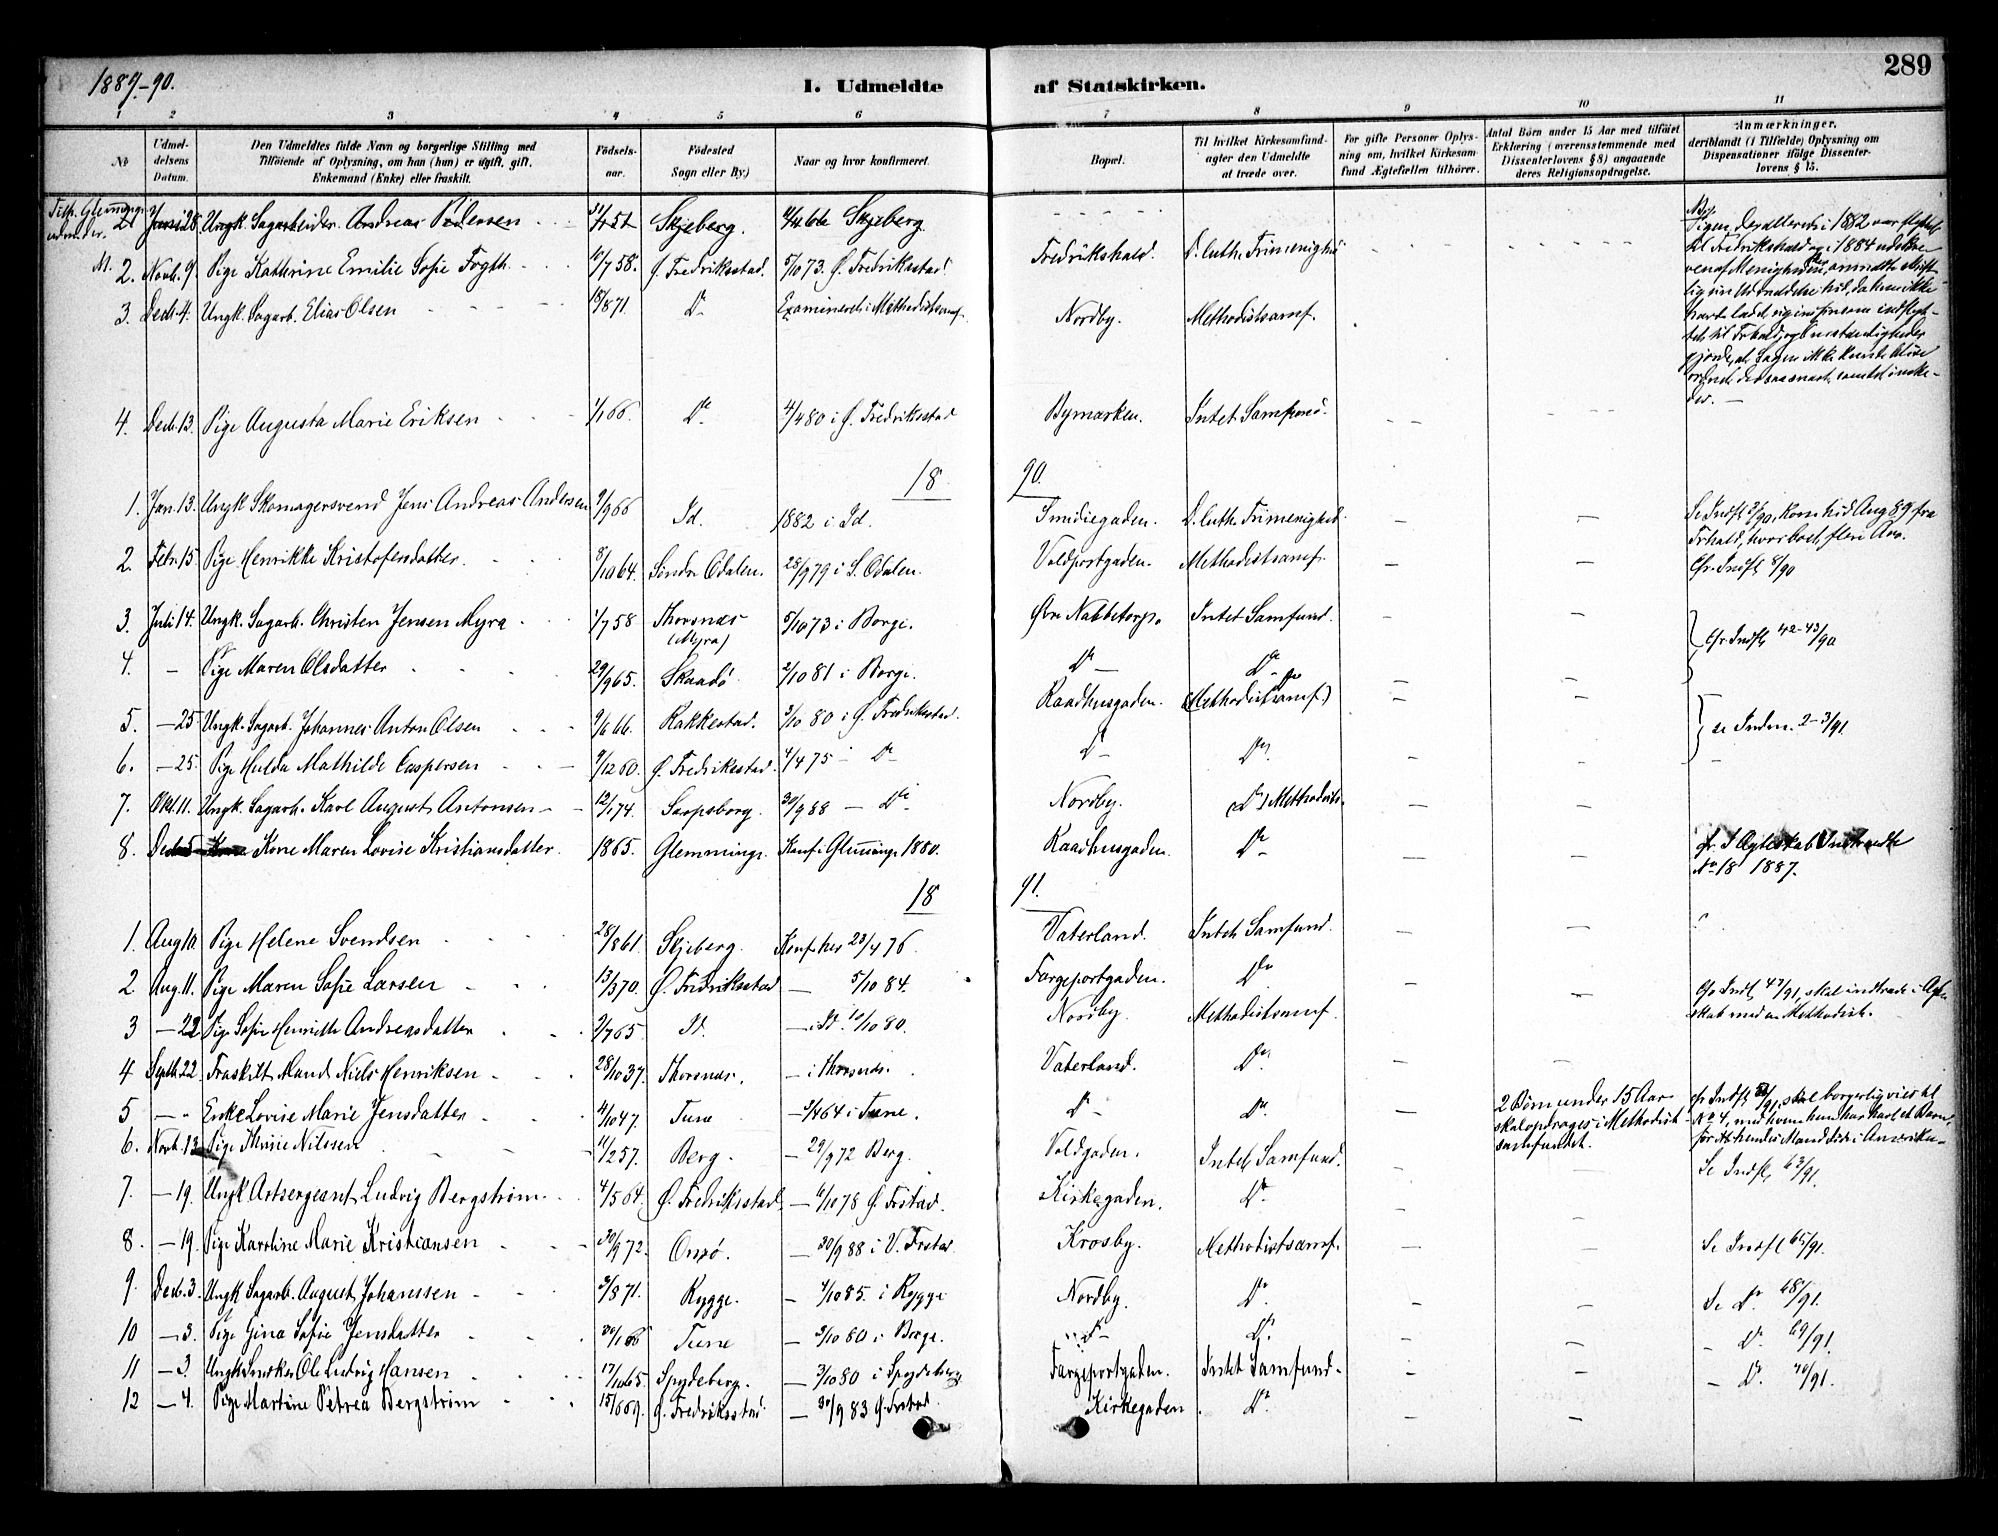 1889-90.
I. Udmeldte af Statskirken.
289
1 2 3 4 5 6 7 8 9 10 11
№
Udmeldelsens Datum.
Den Udmeldtes fulde Navn og borgerlige Stilling med Tilføiende af Oplysning, om han (hun) er ugift, gift, Enkemand (Enke) eller fraskilt.
Fødselsaar.
Fødested Sogn eller By.)
Naar og hvor konfirmeret.
Bopæl.
Til hvilket Kirkesamfund agter den Udmeldte at træde over.
For gifte Personer Oplysning om, hvilket Kirkesamfund Ægtefællen tilhører.
Antal Børn under 15 Aar med tilføiet Erklæring (overensstemmende med Dissenterloven § 8) angaaende deres Religionsopdragelse.
Anmærkninger, deriblandt (i Tilfælde) Oplysning om Dispensationer ifølge Dissenterlovens § 15.
Juni 28 Ungk. Sagarbeider Andreas Pedersen Skjeberg. Skjeberg
2. Novb. 9. Pige Kathrine Emilie Sofie Fogth 10/7 58. Ø. Fredriksstad. 5/10 73. Ø. Fredriksstad. Fredrikshald. D. luth. Frimenighd
3. Decb. 4. Ungk. Sagarb. Elias Olsen 18/8 71. Do Examineret i Methodistsamf. Nordby. Methodistsamf.
4. Decb. 13. Pige Augusta Marie Eriksen 1/1 66. Do 4/4 80 i Ø. Fredriksstad Bymarken. Intet Samfund.
1890.
1. Jan. 13. Ungk Skomagersvend Jens Andreas Andersen 9/9 66 Id. 1882 i Id. Smidiegaden. D. luth. Frimenighed. Se Indfl. 2/90, kom hid Aug 89 fra Frhald, hvor boet flere Aar.
2. Febr. 15. Pige Henrikke Kristofersdatter. 8/10 64. Søndre Odalen. 28/9 79 i S. Odalen. Voldportgaden. Methodistsamf. Cfr. Indfl 8/90
3. Juli 14. Ungk. Sagarb. Christen Jensen Myra 1/7 58 Thorsnæs (Myra) 5/10 73 i Borge. Øvre Nabbetorp. Intet Samfund. Cfr. Indfl. 42-43/90
4. - Pige Maren Olsdatter 29/9 65. Skaadø 2/10 81 i Borge. Do Do
5. -25 Ungk. Sagarb. Johannes Anton Olsen 9/6 66. Rakkestad. 3/10 80 i Ø. Fredriksstad. Raadhusgaden. (Methodistsamf.) se Indm. 2-3/91.
6. -25. Pige Hulda Mathilde Caspersen 9/12 60. Ø. Fredriksstad. 4/4 75 i Do Do Do.
7. Okt. 11. Ungk. Sagarb. Karl August Antonsen 12/1 74. Sarpsborg. 30/9 88 - Do Nordby. (Do) Methodists.
8. Decb 5 Kone Maren Lovise Kristiansdatter. 1865. Glemminge. Konf. Glemminge 1880. Raadhusgaden. Do cfr. I Ægteskab Indtraadte No 18 1887.
1891.
1. Aug 10. Pige Helene Svendsen 28/8 61. Skjeberg. Konf. her 23/4 76. Vaterland. Intet Samfund.
2. Aug. 11. Pige Maren Sofie Larsen 13/3 70. Ø. Fredriksstad — 5/10 84. Færgeportgaden. Do
3 -22 Pige Sofie Henriette Andreasdatter 9/7 65 Id. — i Id. 10/10 80. Nordby. Methodistsamf. Cfr Indfl. 47/91, skal indtræde i Ægteskab med en Methodist.
4 Septb. 22. Fraskilt Mand Niels Henriksen 28/10 37. Thorsnæs. — i Thorsnæs. Vaterland. Do
5 - " Enke Lovise Marie Jensdatter 4/10 47. Tune — 3/4 64 i Tune. Do Do. 2 Børn under 15 Aar skal opdrages i Methodistsamfundet. skal borgerlig vies til No 4, med hvem hun har havt et Barn, før at hendes Mand døde i Amerika.
6. Novb. 13 Pige Thrine Nilssen 11/2 57. Berg. — 29/9 72 Berg. Voldgaden. Intet Samfund. Se Indfl. 63/91.
7. -19. Ungk Artsergeant Ludvig Bergstrøm. 4/5 64. Ø. Fredriksstad — 6/10 78 Ø. Frstad. Kirkegaden. Do.
8. -19. Pige Karoline Marie Kristiansen 30/9 72. Onsø. — 30/9 88 i V. Frstad. Krosby. Methodistsamf. Se Indfl 65/91.
9. Decb. 3. Ungk Sagarb. August Johanssen 3/8 71. Rygge. — 4/10 85. i Rygge Nordby. Do. Se Do 68/91.
10 -3. Pige Gina Sofie Jensdatter 30/1 66 Tune — 3/10 80 i Borge. Do Do. - Do 69/91.
11 -3. Ungk Snedker Ole Ludvig Hansen 17/10 65. Spydeberg. — 3/10 80 i Spydeberg Færgeportgaden. Intet Samfund. - Do. 70/91.
12 -4. Pige Martine Petrea Bergstrøm 15/6 69. Ø. Fredriksstad — 30/9 83 Ø. Frstad. Kirkegaden. Do